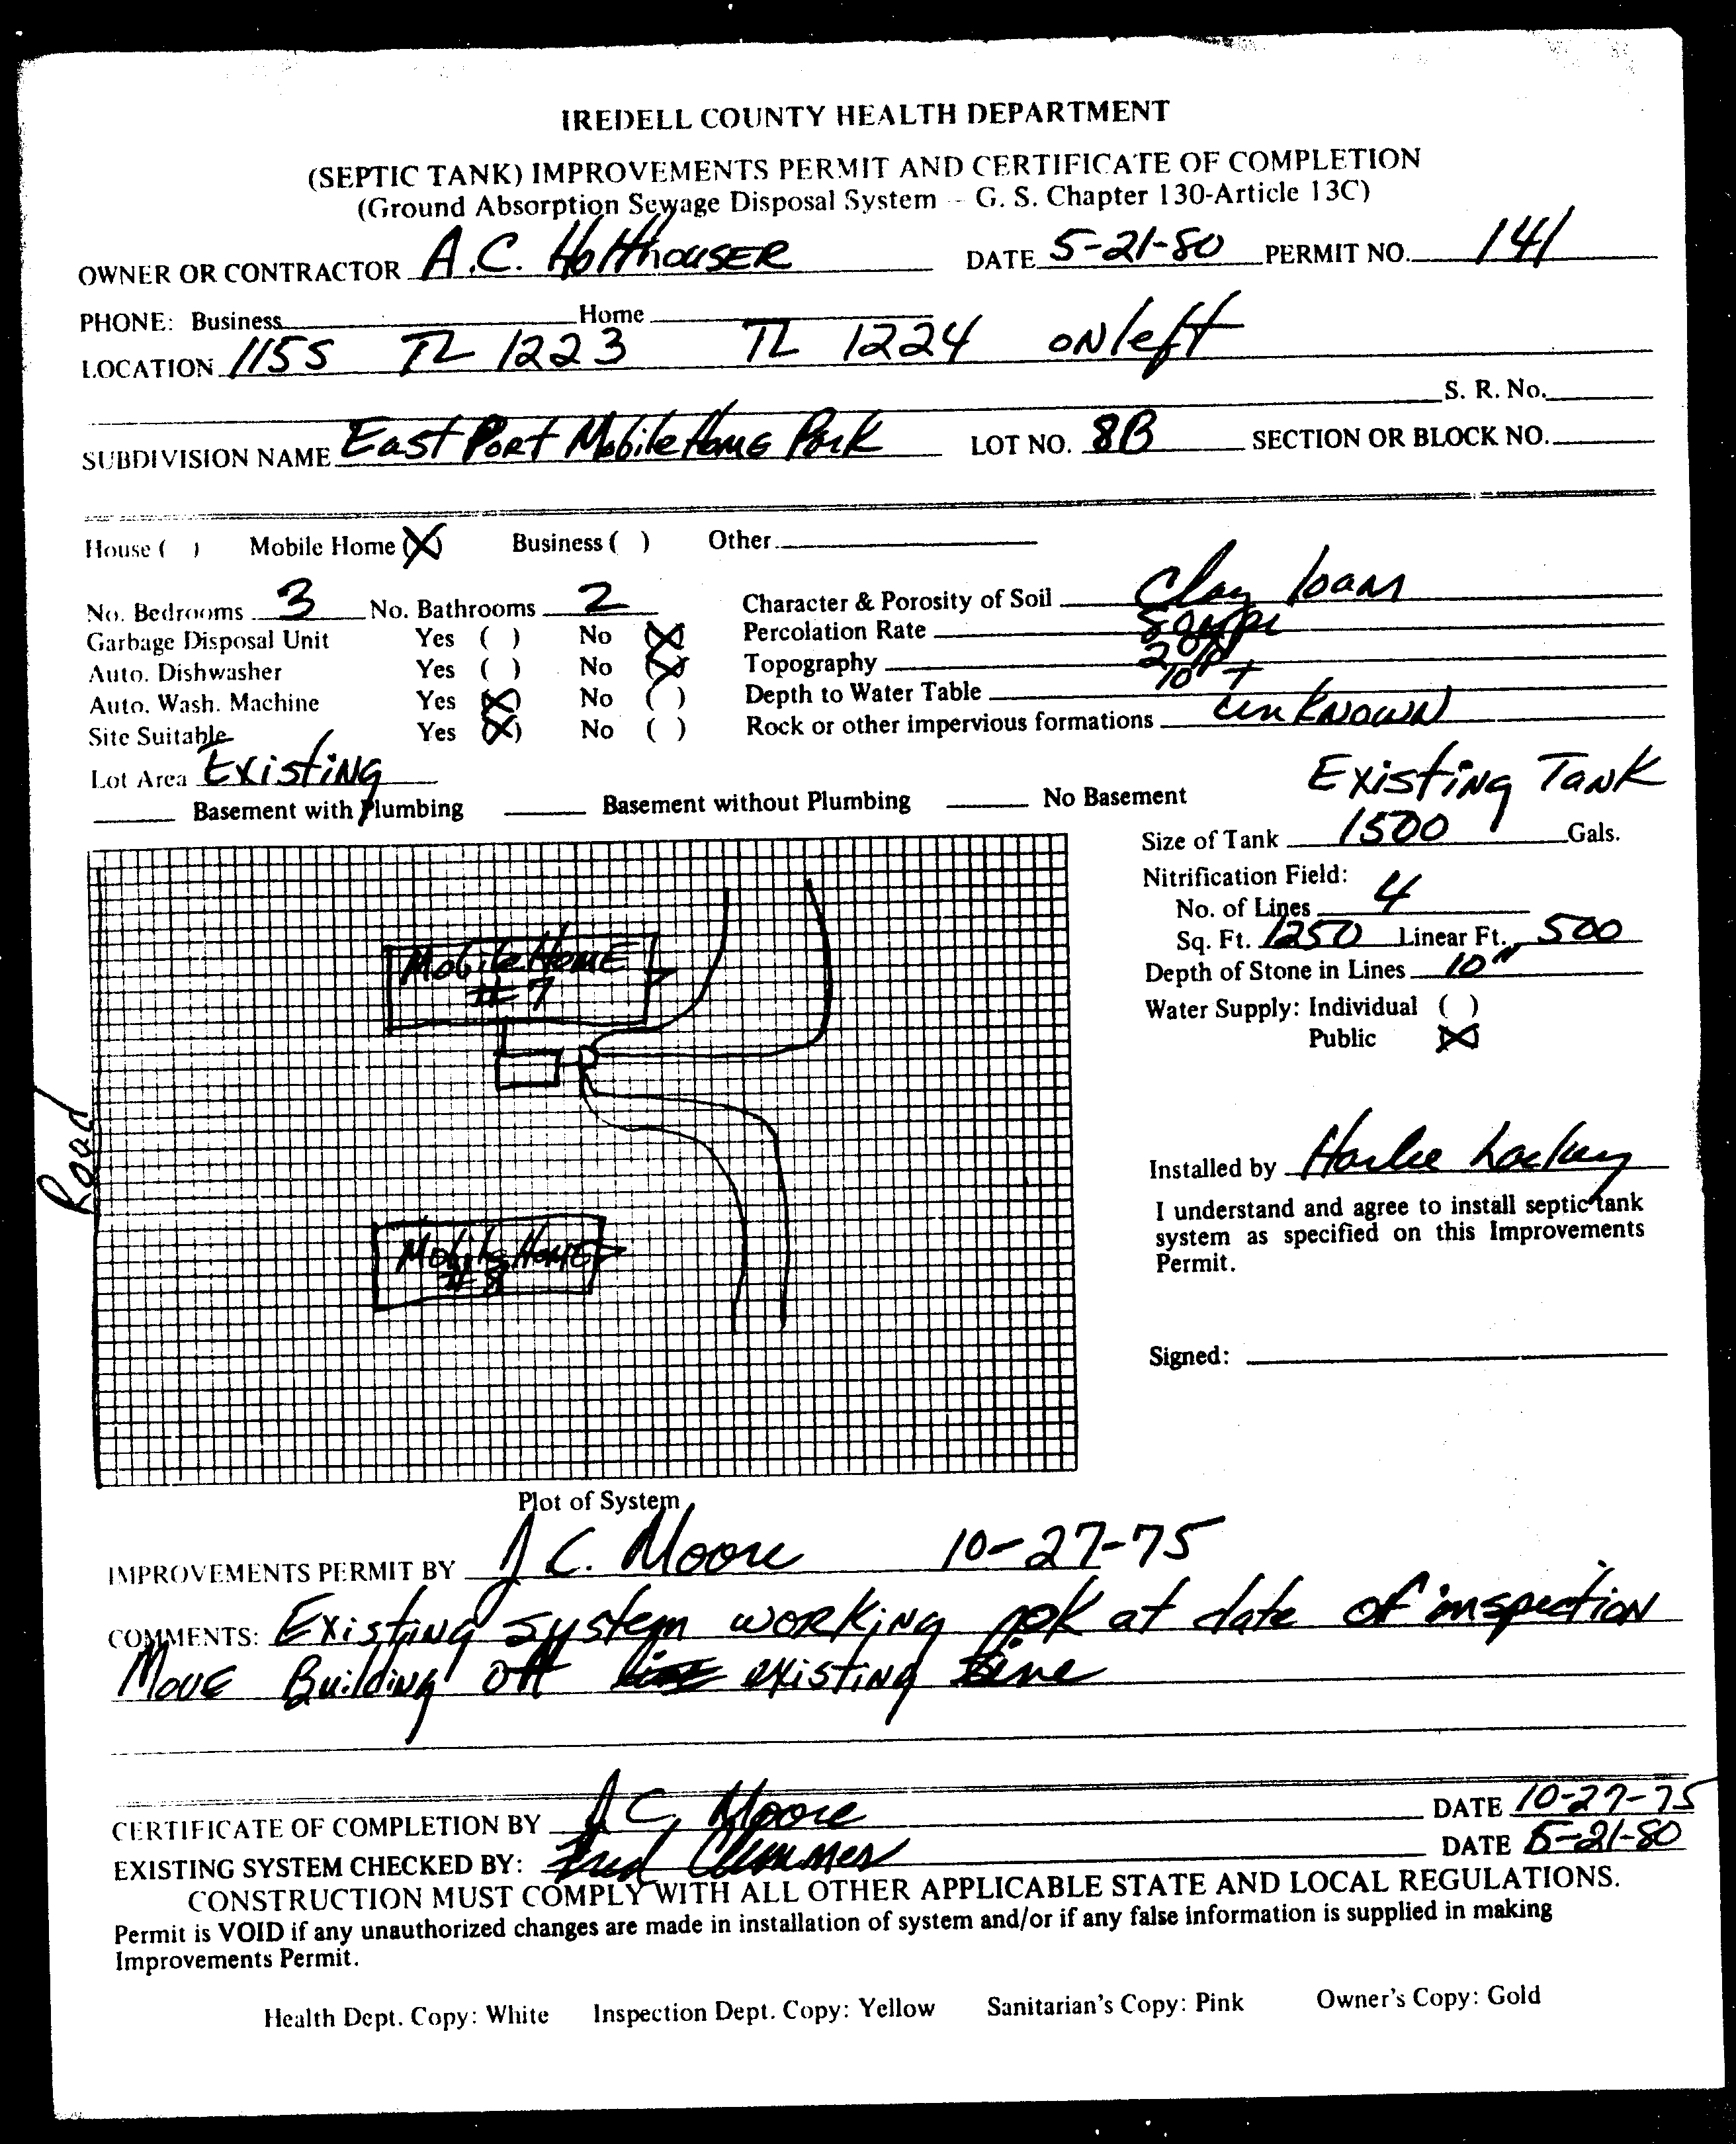 IREDELL COUNTY HEALTH DEPARTMENT
(SEPTIC TANK) IMPROVEMENTS PERMIT AND CERTIFICATE OF COMPLETION
(Ground Absorption Sewage Disposal System -- G. S. Chapter 130-Article 13C)
OWNER OR CONTRACTOR A.C. Holthouser DATE 5-21-80 PERMIT NO. 141
PHONE: Business Home
LOCATION 1155 TL 1223 TL 1224 on left
S. R. No.
SUBDIVISION NAME East Port Mobile Home Park LOT NO. 8B SECTION OR BLOCK NO.
House ( ) Mobile Home (X) Business ( ) Other
No. Bedrooms 3 No. Bathrooms 2 Character & Porosity of Soil Clay loam
Garbage Disposal Unit Yes ( ) No (X) Percolation Rate
Auto. Dishwasher Yes ( ) No (X) Topography
Auto. Wash. Machine Yes (X) No ( ) Depth to Water Table 10' +
Site Suitable Yes (X) No ( ) Rock or other impervious formations unknown
Lot Area Existing
Basement with Plumbing Basement without Plumbing No Basement
Existing Tank
Size of Tank 1500 Gals.
Nitrification Field:
No. of Lines 4
Sq. Ft. 1250 Linear Ft. 500
Depth of Stone in Lines 10"
Water Supply: Individual ( )
Public (X)
Mobile Home
# 7
Road
Mobile Home
# 8
Installed by Harlee Lackey
I understand and agree to install septic tank
system as specified on this Improvements
Permit.
Signed:
Plot of System
IMPROVEMENTS PERMIT BY J C. Moore 10-27-75
COMMENTS: Existing system working ok at date of inspection
Move Building off existing line
CERTIFICATE OF COMPLETION BY J C. Moore DATE 10-27-75
EXISTING SYSTEM CHECKED BY: Fred DATE 5-21-80
CONSTRUCTION MUST COMPLY WITH ALL OTHER APPLICABLE STATE AND LOCAL REGULATIONS.
Permit is VOID if any unauthorized changes are made in installation of system and/or if any false information is supplied in making
Improvements Permit.
Health Dept. Copy: White Inspection Dept. Copy: Yellow Sanitarian's Copy: Pink Owner's Copy: Gold